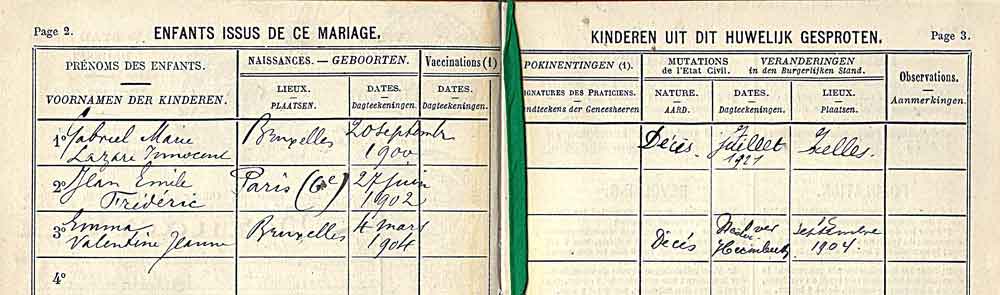 Page 2. ENFANTS ISSUS DE CE MARIAGE.
PRÉNOMS DES ENFANTS.
VOORNAMEN DER KINDEREN.
NAISSANCES. — GEBOORTEN.
LIEUX.
PLAATSEN.
DATES.
Dagteekeningen.
Vaccinations (1)
DATES.
Dagteekeningen.
1° Gabriel Marie
Lazare Innocent
Bruxelles
20 septembre
1900
2° Jean Emile
Frédéric
Paris (6e)
27 juin
1902
3° Emma
Valentine Jeanne
Bruxelles
4 mars
1904
4°
KINDEREN UIT DIT HUWELIJK GESPROTEN. Page 3.
POKINENTINGEN (1).
GNATURES DES PRATICIENS.
andteekens der Geneesheeren
MUTATIONS
de l'Etat Civil.
VERANDERINGEN
in den Burgerlijken Stand.
NATURE.
AARD.
DATES.
Dagteekeningen.
LIEUX.
Plaatsen.
Observations.
Aanmerkingen.
Décés.
Juillet
1921
Décés
septembre
1904.